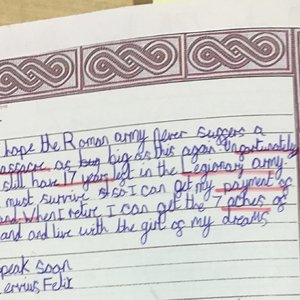 hope the Roman army never suffers a
assacre as big as this again. Unfortunately
still have 17 years left in the Legionary army
must survive so I can get my payment of
and. When I retire, I can get the 7 achers of
and and live with the girl of my dreams
peak soon
ervius Felix